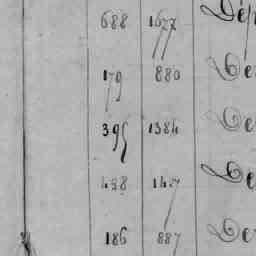 688 1677 Dép
179 880 De
395 1384 De
498 1427 De
186 887 De